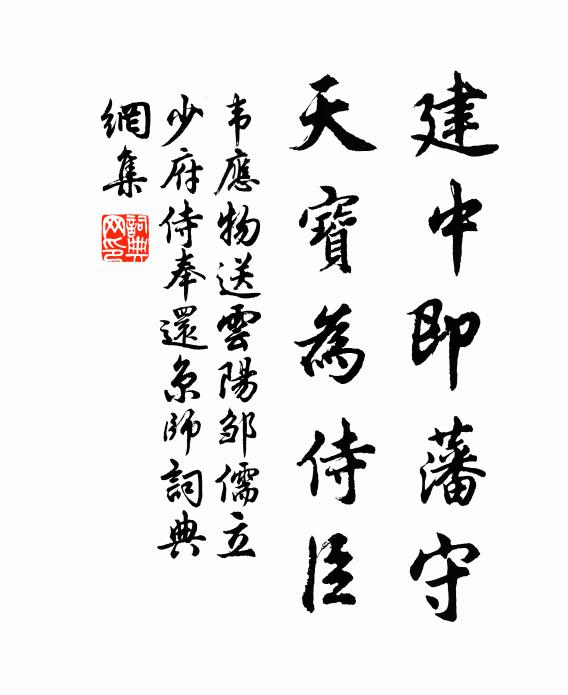 建中即藩守
天寶為侍臣
韦應物送雲陽邹儒立
少府侍奉還京師詞典
網集
詞典
网印